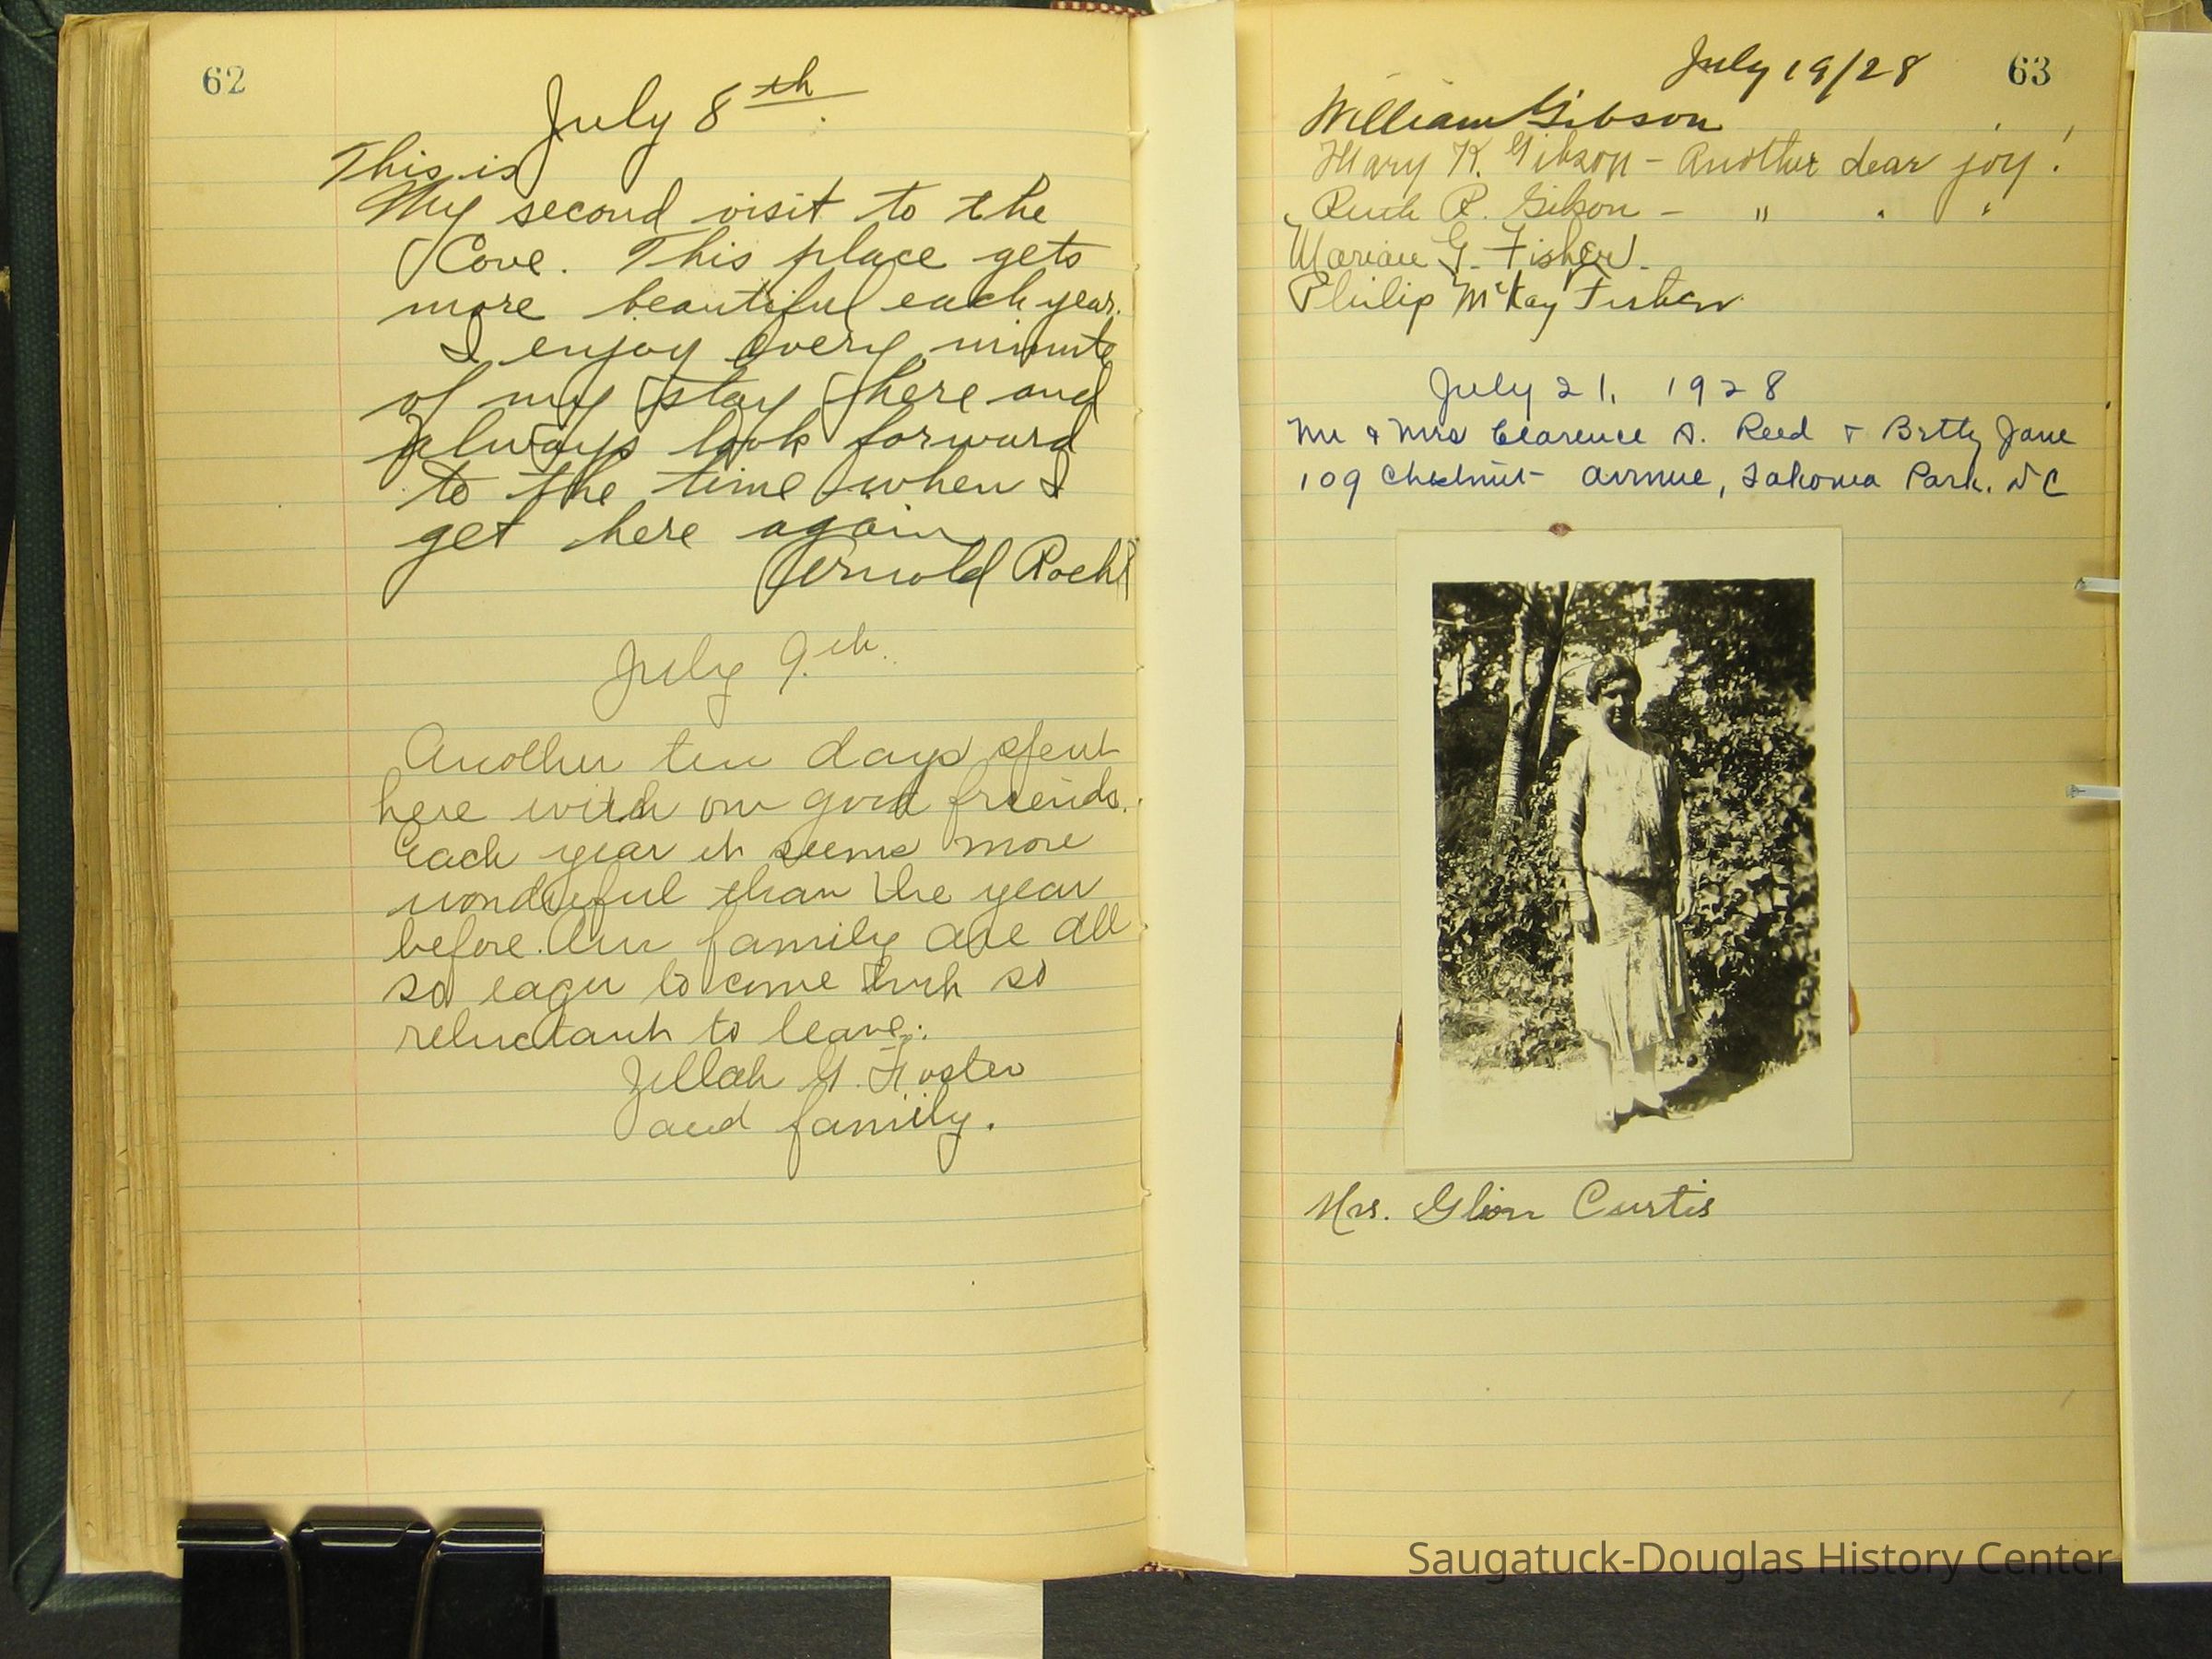 62
July 8th.
This is
My second visit to the
Cove. This place gets
more beautiful each year.
I enjoy every minute
of my stay here and
always look forward
to the time when I
get here again
Arnold
July 9th.
Another ten days spent
here with our good friends.
Each year it seems more
wonderful than the year
before. Our family are all
so eager to come but so
reluctant to leave.
Zillah G. Foster
and family.
July 19/28
63
William Gibson
Mary K. Gibson - Another dear joy!
Ruth R. Gibson - " " "
Marian G. Fisher.
Philip McKay Fisher
July 21, 1928
Mr & Mrs Clarence A. Reed & Betty Jane
109 Chestnut Avenue, Takoma Park. DC
Mrs. Glion Curtis
Saugatuck-Douglas History Center